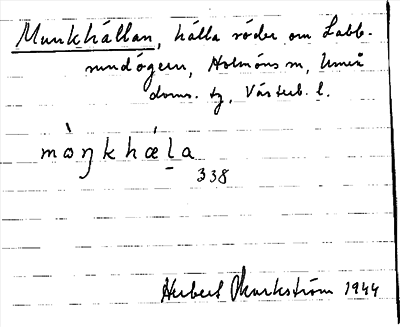 Munkhällan, hälla söder om Labb-
rundögern, Holmöns sn, Umeå
doms. tg, Västerb. l.
mòŋkhǽl̠a
338
Herbert Markström 1944